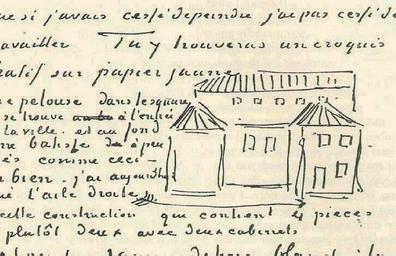 si j'avais cessé de peindre j'ai pas cessé de
availler Tu y trouveras un croquis
ratif sur papier jaune
e pelouse dans le square
se trouve à l'entrée
la ville. et au fond
ne batisse de à peu
ès comme ceci –
bien. j'ai aujourdhui
l'aile droite
cette construction qui contient 4 pieces
plutôt deux avec deux cabinets